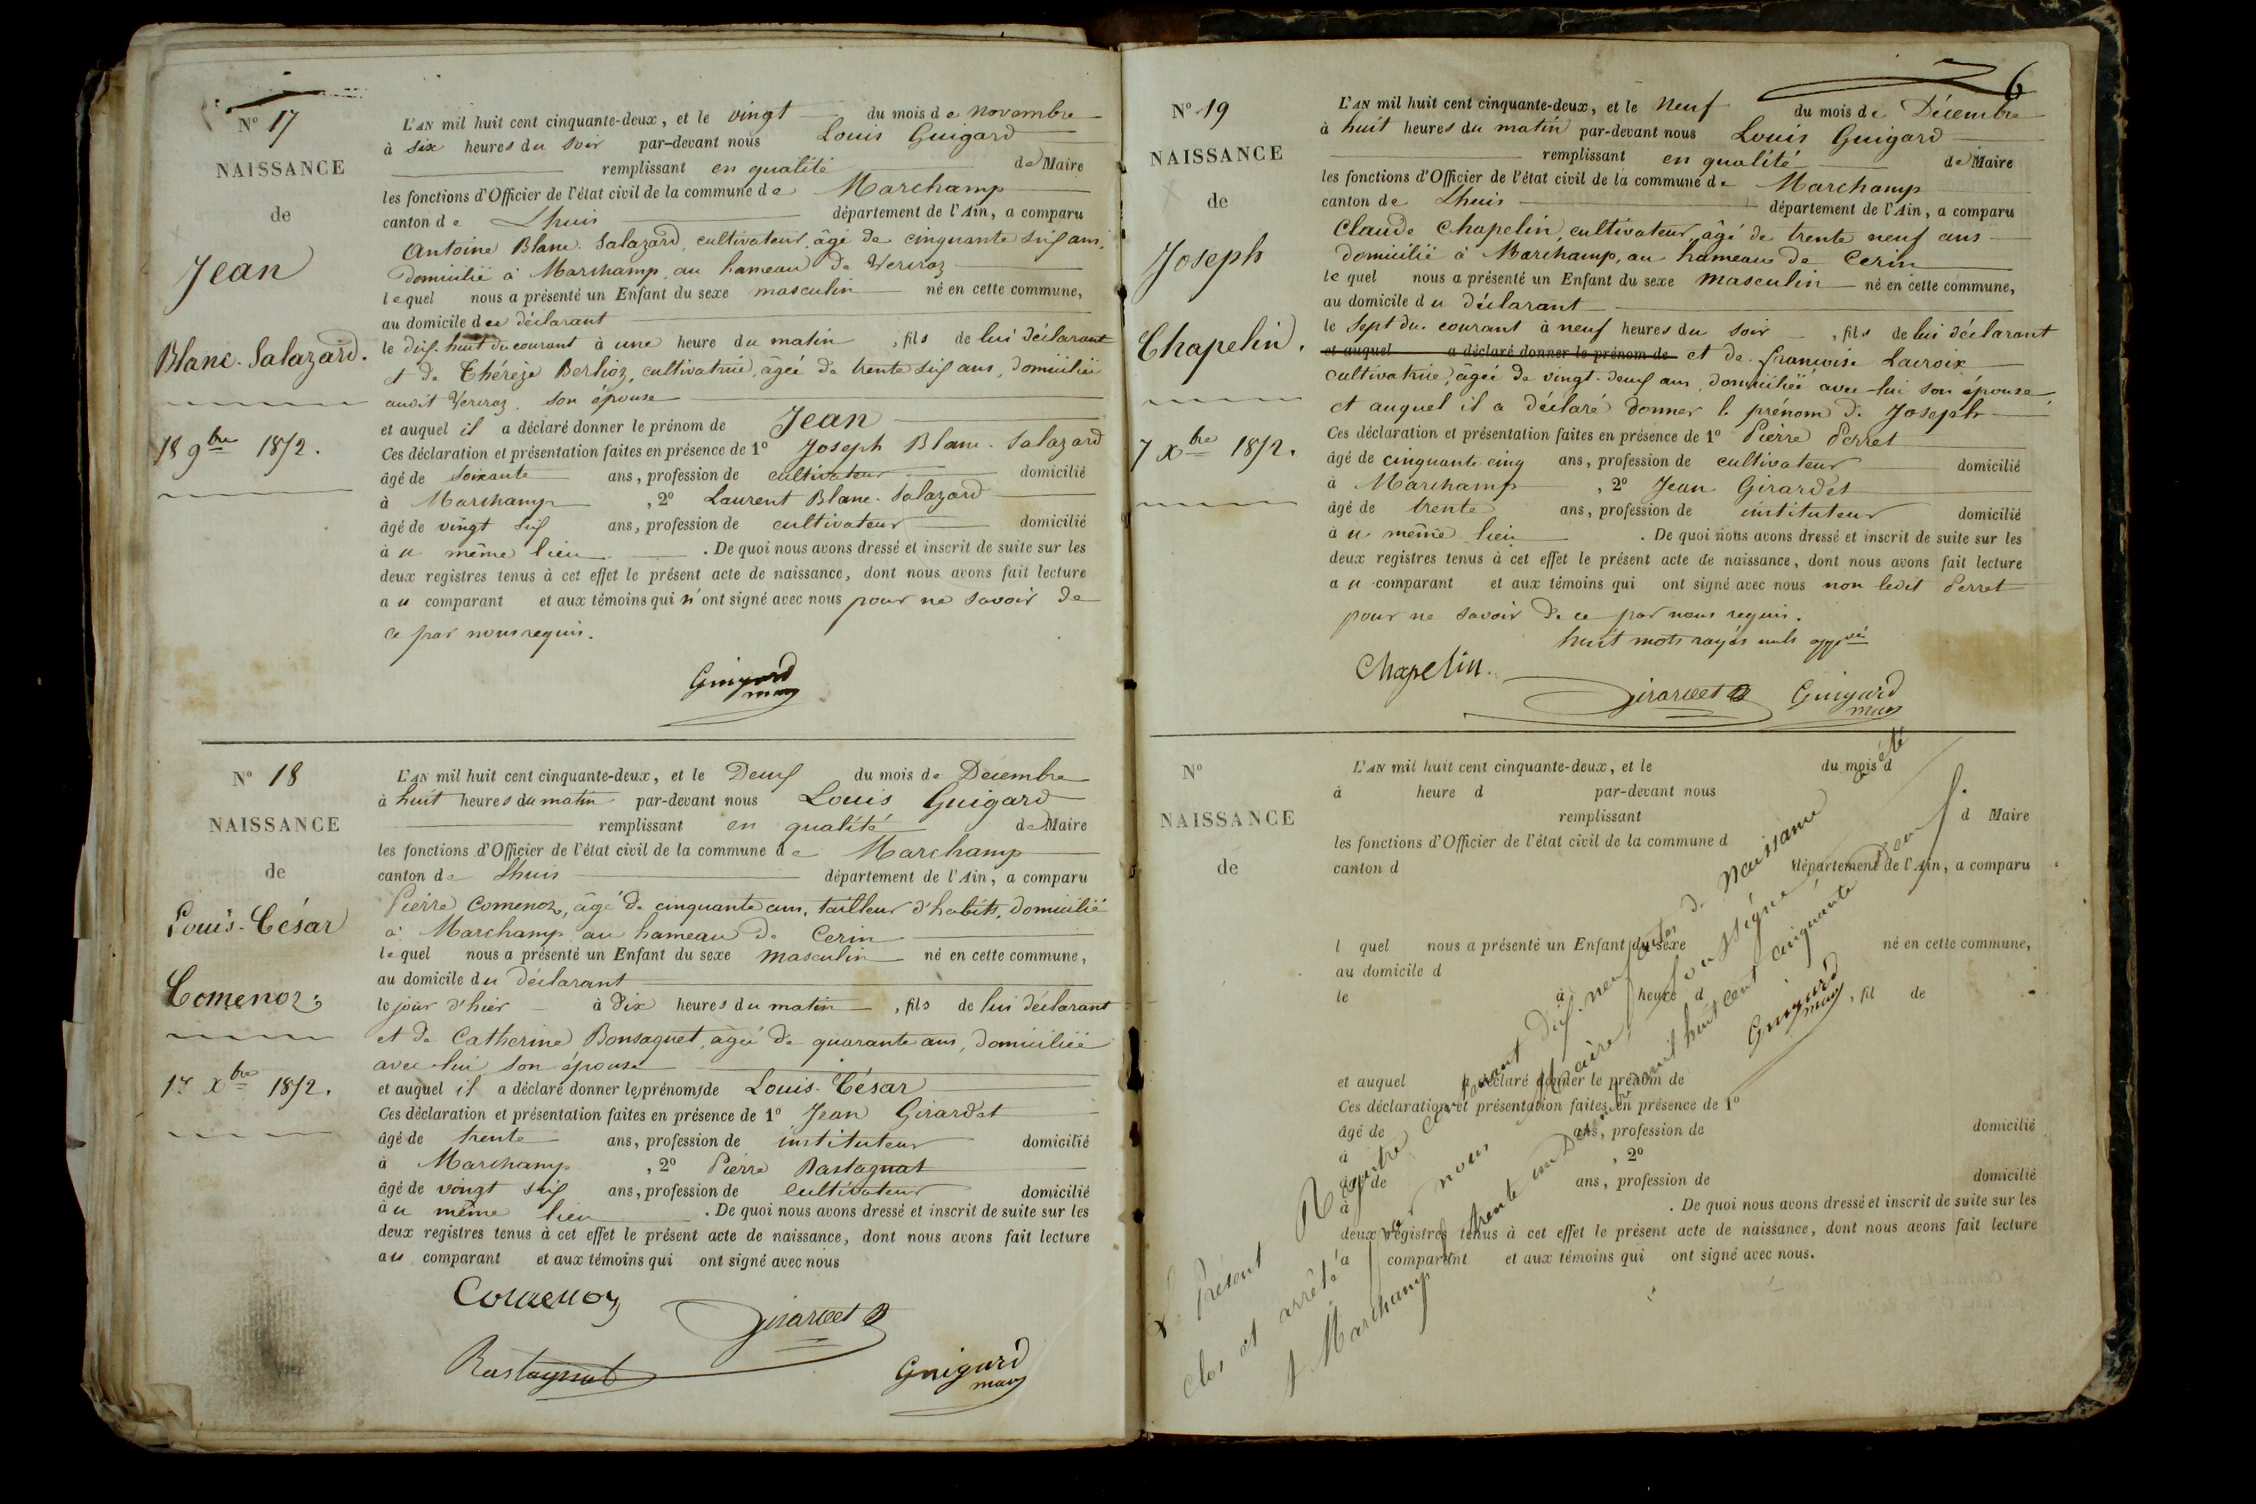 Nº 17
NAISSANCE
de
Jean
Blanc-Salazard.
18 9bre 1852.
L'AN mil huit cent cinquante-deux, et le vingt du mois de novembre
à six heures du soir par-devant nous Louis Guigard
remplissant en qualité de Maire
les fonctions d'Officier de l'état civil de la commune de Marchamp
canton de Lhuis département de l'Ain, a comparu
Antoine Blanc-Salazard, cultivateur, âgé de cinquante six ans,
domicilié à Marchamp, au hameau de Verciraz
lequel nous a présenté un Enfant du sexe masculin né en cette commune,
au domicile du déclarant
le dix-huit du courant à une heure du matin, fils de lui déclarant
et de Thérèze Berlioz, cultivatrice, âgée de trente six ans, domiciliée
audit son épouse
et auquel il a déclaré donner le prénom de Jean
Ces déclaration et présentation faites en présence de 1º Joseph Blanc-Salazard
âgé de soixante ans, profession de cultivateur domicilié
à Marchamp, 2º Laurent Blanc-Salazard
âgé de vingt six ans, profession de cultivateur domicilié
au même lieu. De quoi nous avons dressé et inscrit de suite sur les
deux registres tenus à cet effet le présent acte de naissance, dont nous avons fait lecture
au comparant et aux témoins qui n'ont signé avec nous pour ne savoir de
ce par nous requis.
Guigard
maire
Nº 18
NAISSANCE
de
Louis-César
Comenoz.
1er Xbre 1852.
L'AN mil huit cent cinquante-deux, et le Deux du mois de Décembre
à huit heures du matin par-devant nous Louis Guigard
remplissant en qualité de Maire
les fonctions d'Officier de l'état civil de la commune de Marchamp
canton de Lhuis département de l'Ain, a comparu
Pierre Comenoz, âgé de cinquante ans, tailleur d'habits, domicilié
à Marchamp au hameau de Cerin
lequel nous a présenté un Enfant du sexe masculin né en cette commune,
au domicile du déclarant
le jour d'hier à dix heures du matin, fils de lui déclarant
et de Catherine Bonsaquet, âgée de quarante ans, domiciliée
avec lui son épouse
et auquel il a déclaré donner les prénoms de Louis-César
Ces déclaration et présentation faites en présence de 1º Jean Girardet
âgé de trente ans, profession de instituteur domicilié
à Marchamp, 2º Pierre Rastagnat
âgé de vingt six ans, profession de cultivateur domicilié
au même lieu. De quoi nous avons dressé et inscrit de suite sur les
deux registres tenus à cet effet le présent acte de naissance, dont nous avons fait lecture
au comparant et aux témoins qui ont signé avec nous
Comenoz
Girardet
Rastagnat
Guigard
maire
6
Nº 19
NAISSANCE
de
Joseph
Chapelin.
7 Xbre 1852.
L'AN mil huit cent cinquante-deux, et le neuf du mois de Décembre
à huit heures du matin par-devant nous Louis Guigard
remplissant en qualité de Maire
les fonctions d'Officier de l'état civil de la commune de Marchamp
canton de Lhuis département de l'Ain, a comparu
Claude Chapelin, cultivateur, âgé de trente neuf ans
domicilié à Marchamp, au hameau de Cerin
lequel nous a présenté un Enfant du sexe masculin né en cette commune,
au domicile du déclarant
le sept du courant à neuf heures du soir, fils de lui déclarant
et auquel a déclaré donner le prénom de et de françoise Lacroix
cultivatrice, âgée de vingt-deux ans, domiciliée avec lui son épouse
et auquel il a déclaré donner le prénom de Joseph
Ces déclaration et présentation faites en présence de 1º Pierre Perret
âgé de cinquante cinq ans, profession de cultivateur domicilié
à Marchamp, 2º Jean Girardet
âgé de trente ans, profession de instituteur domicilié
au même lieu. De quoi nous avons dressé et inscrit de suite sur les
deux registres tenus à cet effet le présent acte de naissance, dont nous avons fait lecture
au comparant et aux témoins qui ont signé avec nous non ledit Perret
pour ne savoir de ce par nous requis.
huit mots rayés nuls
Chapelin.
Girardet
Guigard
maire
Nº
NAISSANCE
de
L'AN mil huit cent cinquante-deux, et le du mois d
à heure d par-devant nous
remplissant d Maire
les fonctions d'Officier de l'état civil de la commune d
canton d département de l'Ain, a comparu
l quel nous a présenté un Enfant du sexe né en cette commune,
au domicile d
le à heure d, fil de
et auquel a déclaré donner le prénom de
Ces déclaration et présentation faites en présence de 1º
âgé de ans, profession de domicilié
à, 2º
âgé de ans, profession de domicilié
à. De quoi nous avons dressé et inscrit de suite sur les
deux registres tenus à cet effet le présent acte de naissance, dont nous avons fait lecture
a comparant et aux témoins qui ont signé avec nous.
Le présent Registre contenant dix-neuf actes de naissance a été
clos et arrêté par nous Maire, soussigné
à Marchamp, trente un Décembre mil huit cent cinquante Deux.
Guigard
maire